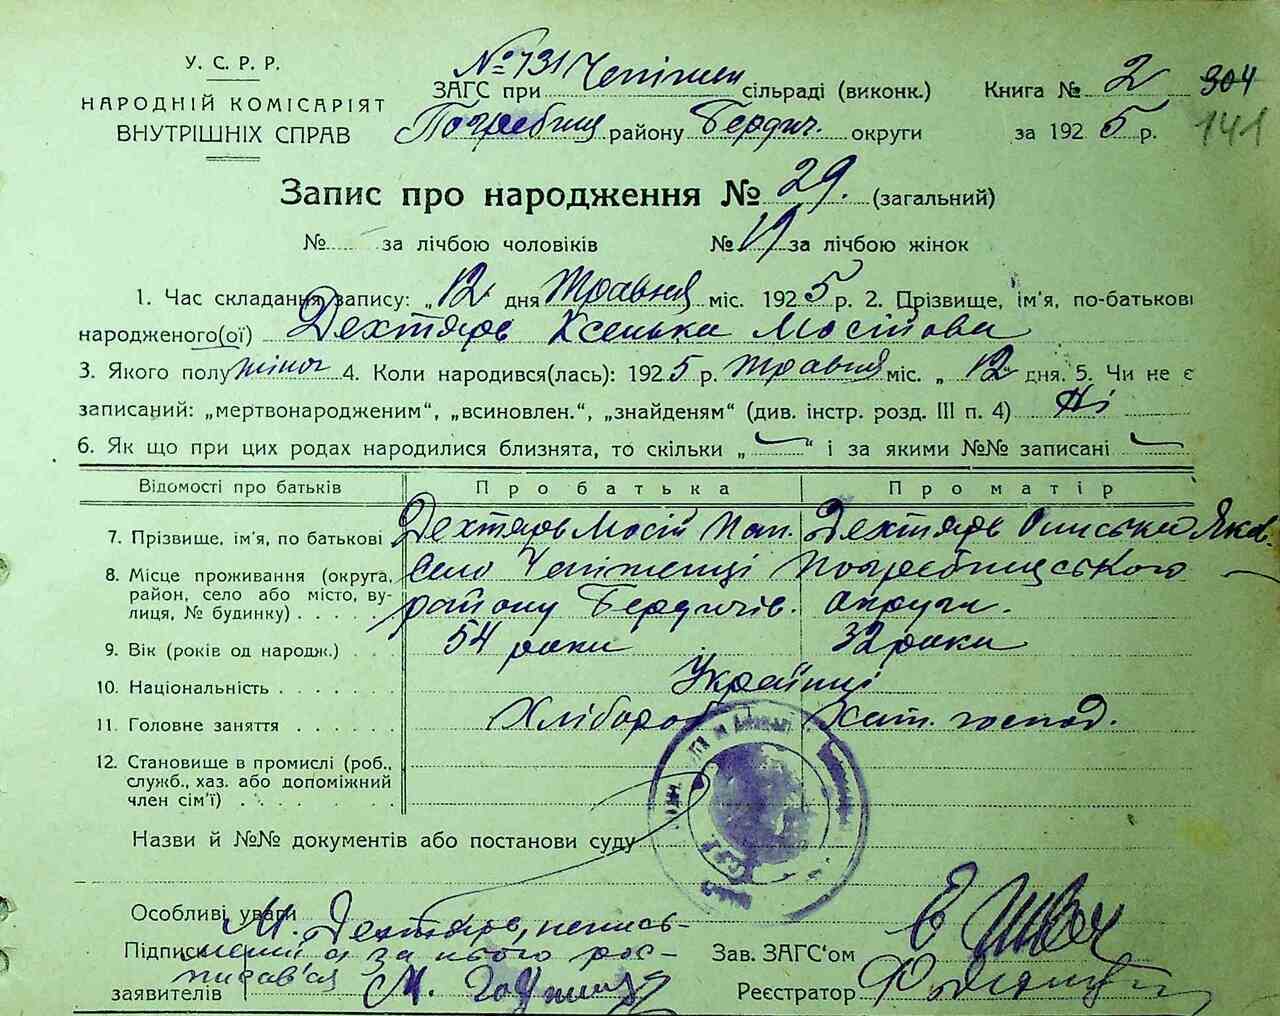 У. С. Р. Р.
НАРОДНІЙ КОМІСАРІЯТ
ВНУТРІШНІХ СПРАВ
№ 731
ЗАГС при сільраді (виконк.) Книга № 2 304
Погребищ району Бердич. округи за 1925 р. 141
Запис про народження № 29. (загальний)
№ за лічбою чоловіків № 19 за лічбою жінок
1. Час складання запису: „12 дня Травня міс. 1925 р. 2. Прізвище, ім'я, по-батькові
народженого(ої) Дехтярь Ксенька Мосійова
3. Якого полу жіноч 4. Коли народився(лась): 1925 р. травня міс. „12" дня. 5. Чи не є
записаний: „мертвонародженим", „всиновлен.", „знайденям" (див. інстр. розд. III п. 4) Ні
6. Як що при цих родах народилися близнята, то скільки „—" і за якими №№ записані —
Відомості про батьків Про батька Про матір
7. Прізвище, ім'я, по батькові Дехтярь Мосій Дехтярь Яков.
8. Місце проживання (округа, район, село або місто, вулиця, № будинку) село Погребищського
району Бердичів. округи.
9. Вік (років од народж.) 54 роки 32 роки
10. Національність Українці
11. Головне заняття Хлібороб Хат. господ.
12. Становище в промислі (роб.,
служб., хаз. або допоміжний
член сім'ї)
Назви й №№ документів або постанови суду
Особливі уваги М. Дехтярь, непись-
Підписи менний а за нього рос- Зав. ЗАГС'ом
писався
заявителів М. Реєстратор